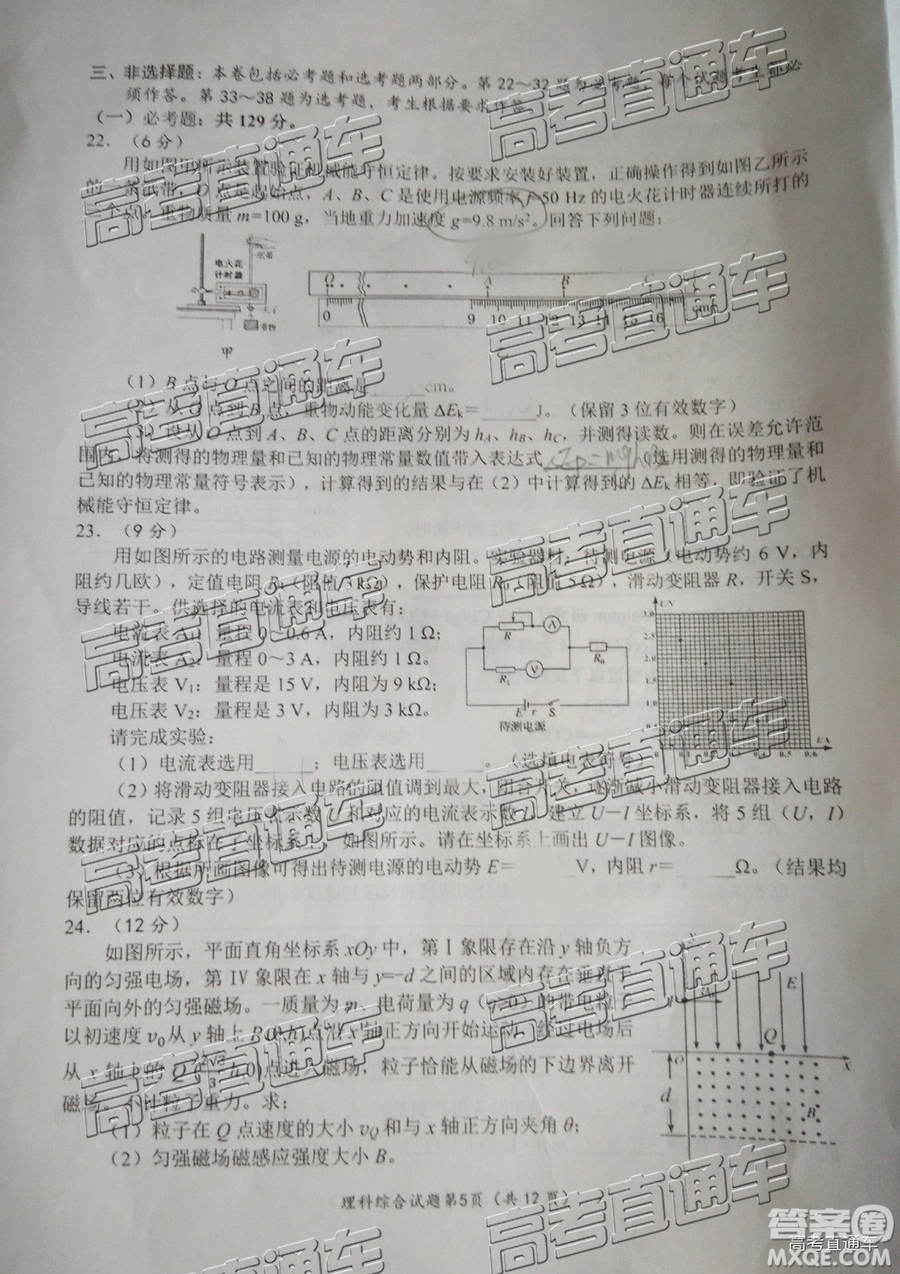 三、非选择题：本卷包括必考题和选考题两部分。第22～32题为必考题，每个试题考生都必
须作答。第33～38题为选考题，考生根据要求作答。
（一）必考题：共129分。
22．（6分）
用如图甲所示装置验证机械能守恒定律。按要求安装好装置，正确操作得到如图乙所示
的一条纸带，O点是起始点，A、B、C是使用电源频率 50 Hz的电火花计时器连续所打的
点。重物质量 m=100 g，当地重力加速度 g=9.8 m/s²。回答下列问题：
电火花
计时器
纸带
重物
甲
O A B C
0 9 10 11 12 13 14 15 16 cm
（1）B点与O点之间的距离是 cm。
（2）从O点到B点，重物动能变化量 ΔEk= J。（保留3位有效数字）
（3）设从O点到A、B、C点的距离分别为 hA、hB、hC，并测得读数。则在误差允许范
围内，将测得的物理量和已知的物理常量数值带入表达式 （选用测得的物理量和
已知的物理常量符号表示），计算得到的结果与在（2）中计算得到的 ΔEk 相等，即验证了机
械能守恒定律。
23．（9分）
用如图所示的电路测量电源的电动势和内阻。实验器材：待测电源（电动势约 6 V，内
阻约几欧），定值电阻 R1（阻值3 kΩ），保护电阻 R0（阻值5 Ω），滑动变阻器 R，开关 S，
导线若干。供选择的电流表和电压表有：
电流表 A1：量程 0～0.6 A，内阻约 1 Ω；
电流表 A2：量程 0～3 A，内阻约 1 Ω。
电压表 V1：量程是 15 V，内阻为 9 kΩ；
电压表 V2：量程是 3 V，内阻为 3 kΩ。
R A
R1 V R0
E r S
待测电源
U/V
3.0
2.5
2.0
1.5
1.0
0.5
0 0.1 0.2 0.3 0.4 0.5 0.6
I/A
请完成实验：
（1）电流表选用 ；电压表选用 。（选填电表符号）
（2）将滑动变阻器接入电路的阻值调到最大，闭合开关，逐渐减小滑动变阻器接入电路
的阻值，记录5组电压表示数U和对应的电流表示数I，建立 U—I 坐标系，将5组（U，I）
数据对应的点标在了坐标系上，如图所示。请在坐标系上画出 U—I 图像。
（3）根据所画图像可得出待测电源的电动势 E= V，内阻 r= Ω。（结果均
保留两位有效数字）
24．（12分）
如图所示，平面直角坐标系 xOy 中，第Ⅰ象限存在沿 y 轴负方
向的匀强电场，第 IV 象限在 x 轴与 y=-d 之间的区域内存在垂直于
平面向外的匀强磁场。一质量为 m、电荷量为 q（q>0）的带电粒子
以初速度 v0 从 y 轴上 点沿 x 轴正方向开始运动，经过电场后
从 x 轴上的 Q 点进入磁场，粒子恰能从磁场的下边界离开
磁场。不计粒子重力。求：
（1）粒子在 Q 点速度的大小 vQ 和与 x 轴正方向夹角 θ；
（2）匀强磁场磁感应强度大小 B。
E
Q
O x
d
B
理科综合试题第5页（共12页）
高考直通车
高考直通车
高考直通车
高考直通车
高考直通车
高考直通车
高考直通车
高考直通车
高考直通车
高考直通车
答案圈
高考直通车
MXQE.COM